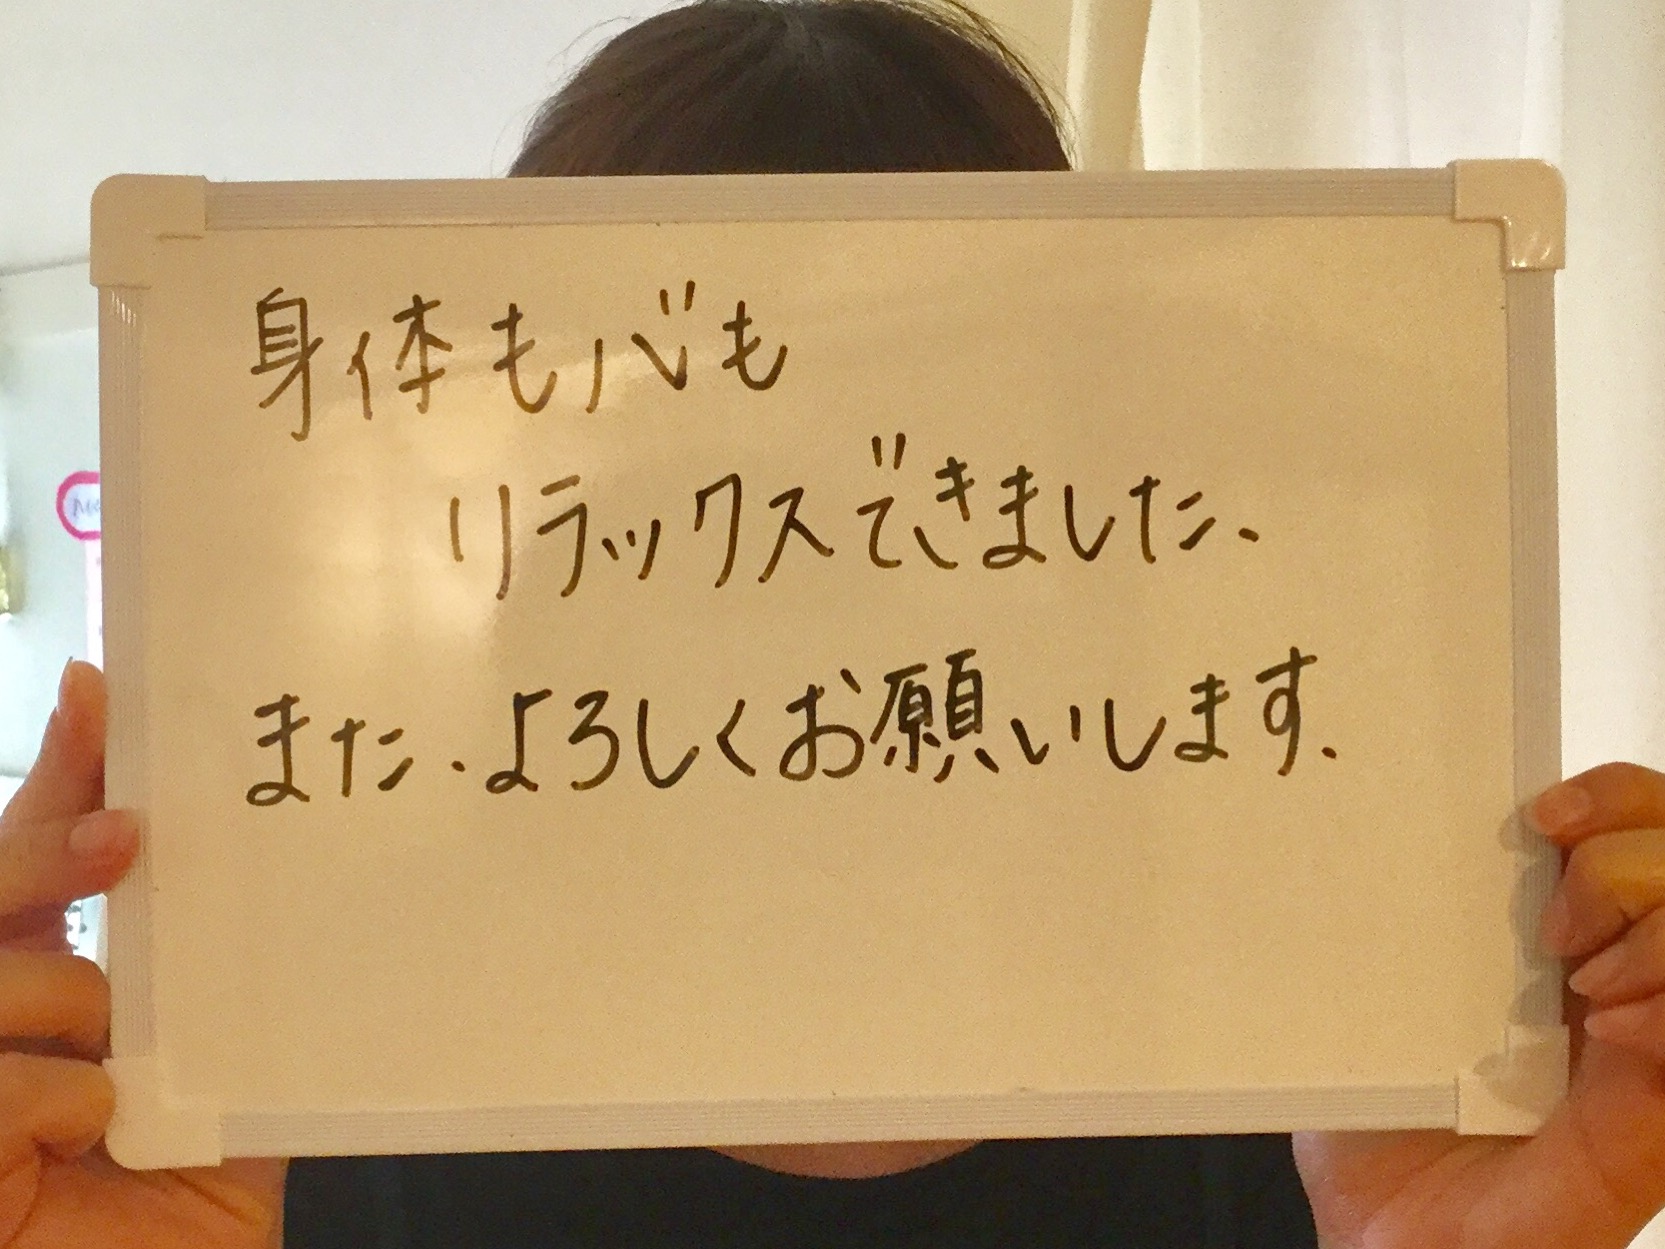 身体も心も
リラックスできました、
また、よろしくお願いします、